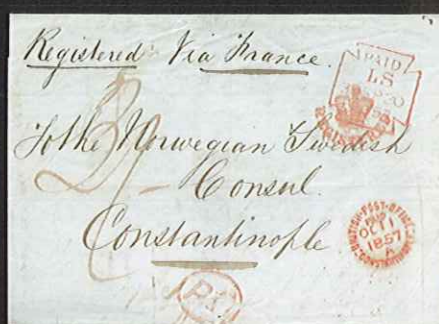 Registered Via France.
PAID
LS
REGISTERED
To the Norwegian Swedish
Consul.
Constantinople
BRITISH-POST-OFFICE
PAID
OCT 1
1857
A
CONSTANTINOPLE